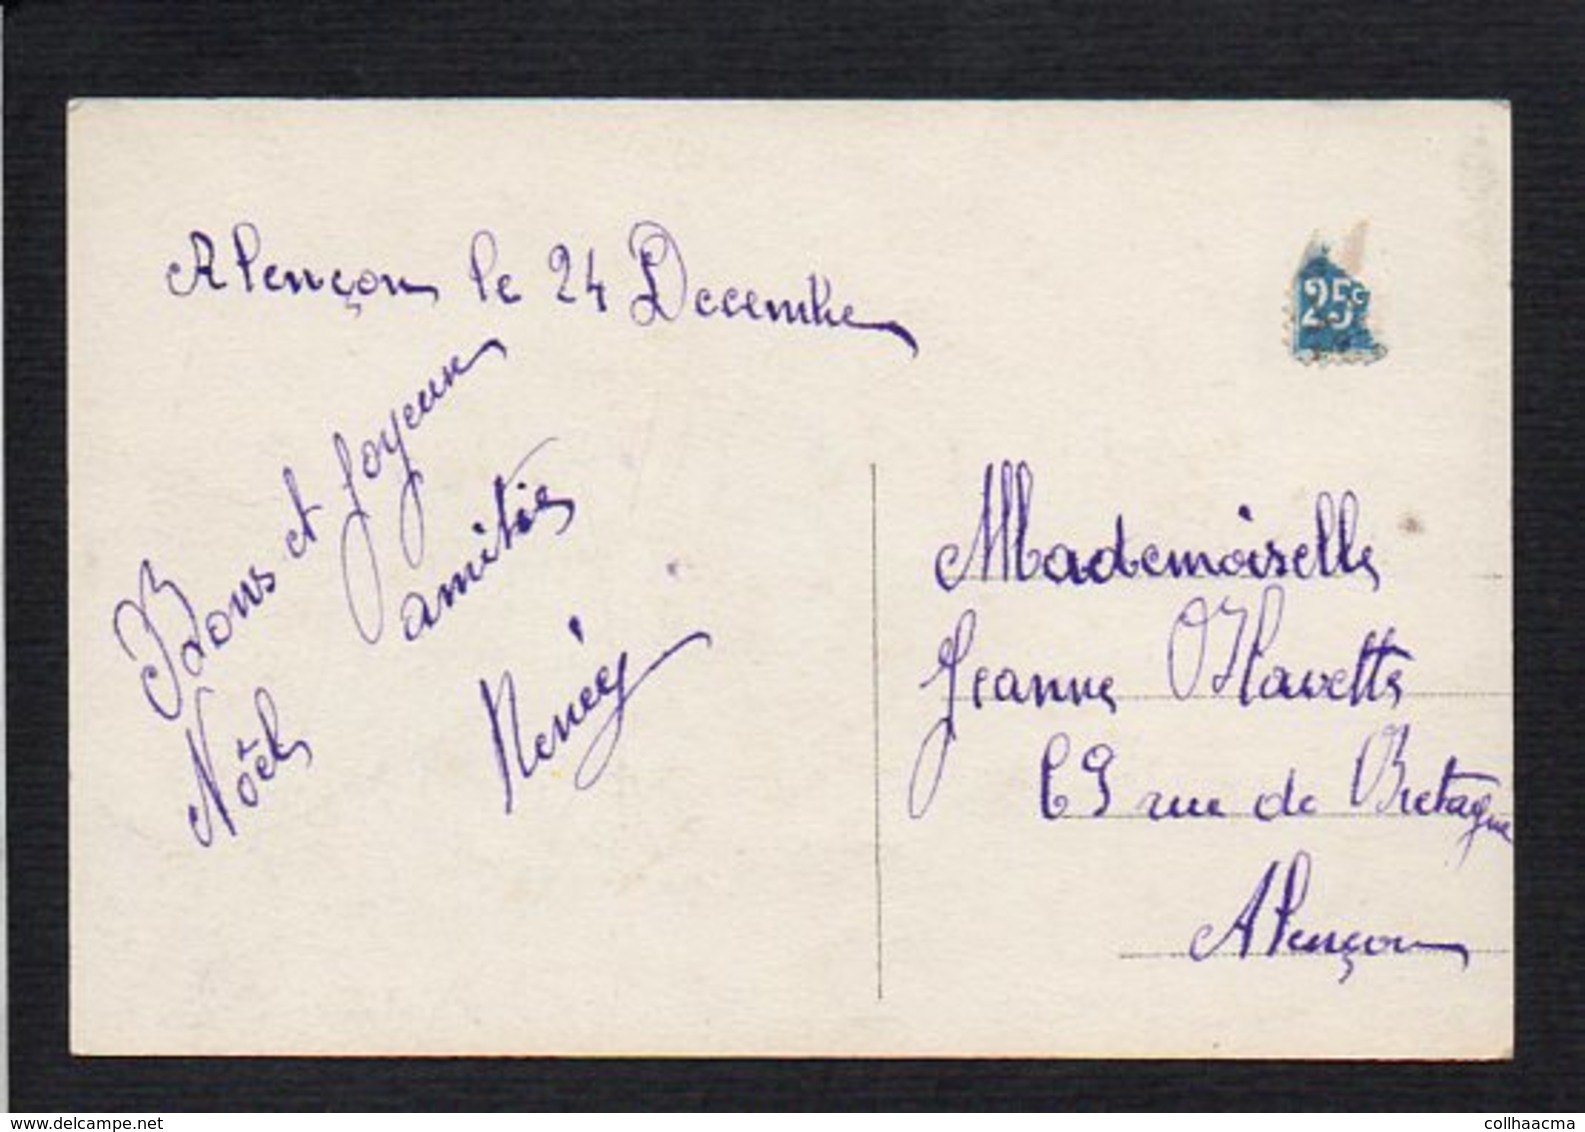 Alençon le 24 Decembre
Bons et Joyeux
Noël
amitiés
Renée
25c
Mademoiselle
Jeanne Havette
69 rue de Bretagne
Alençon
www.delcampe.net
colhaacma